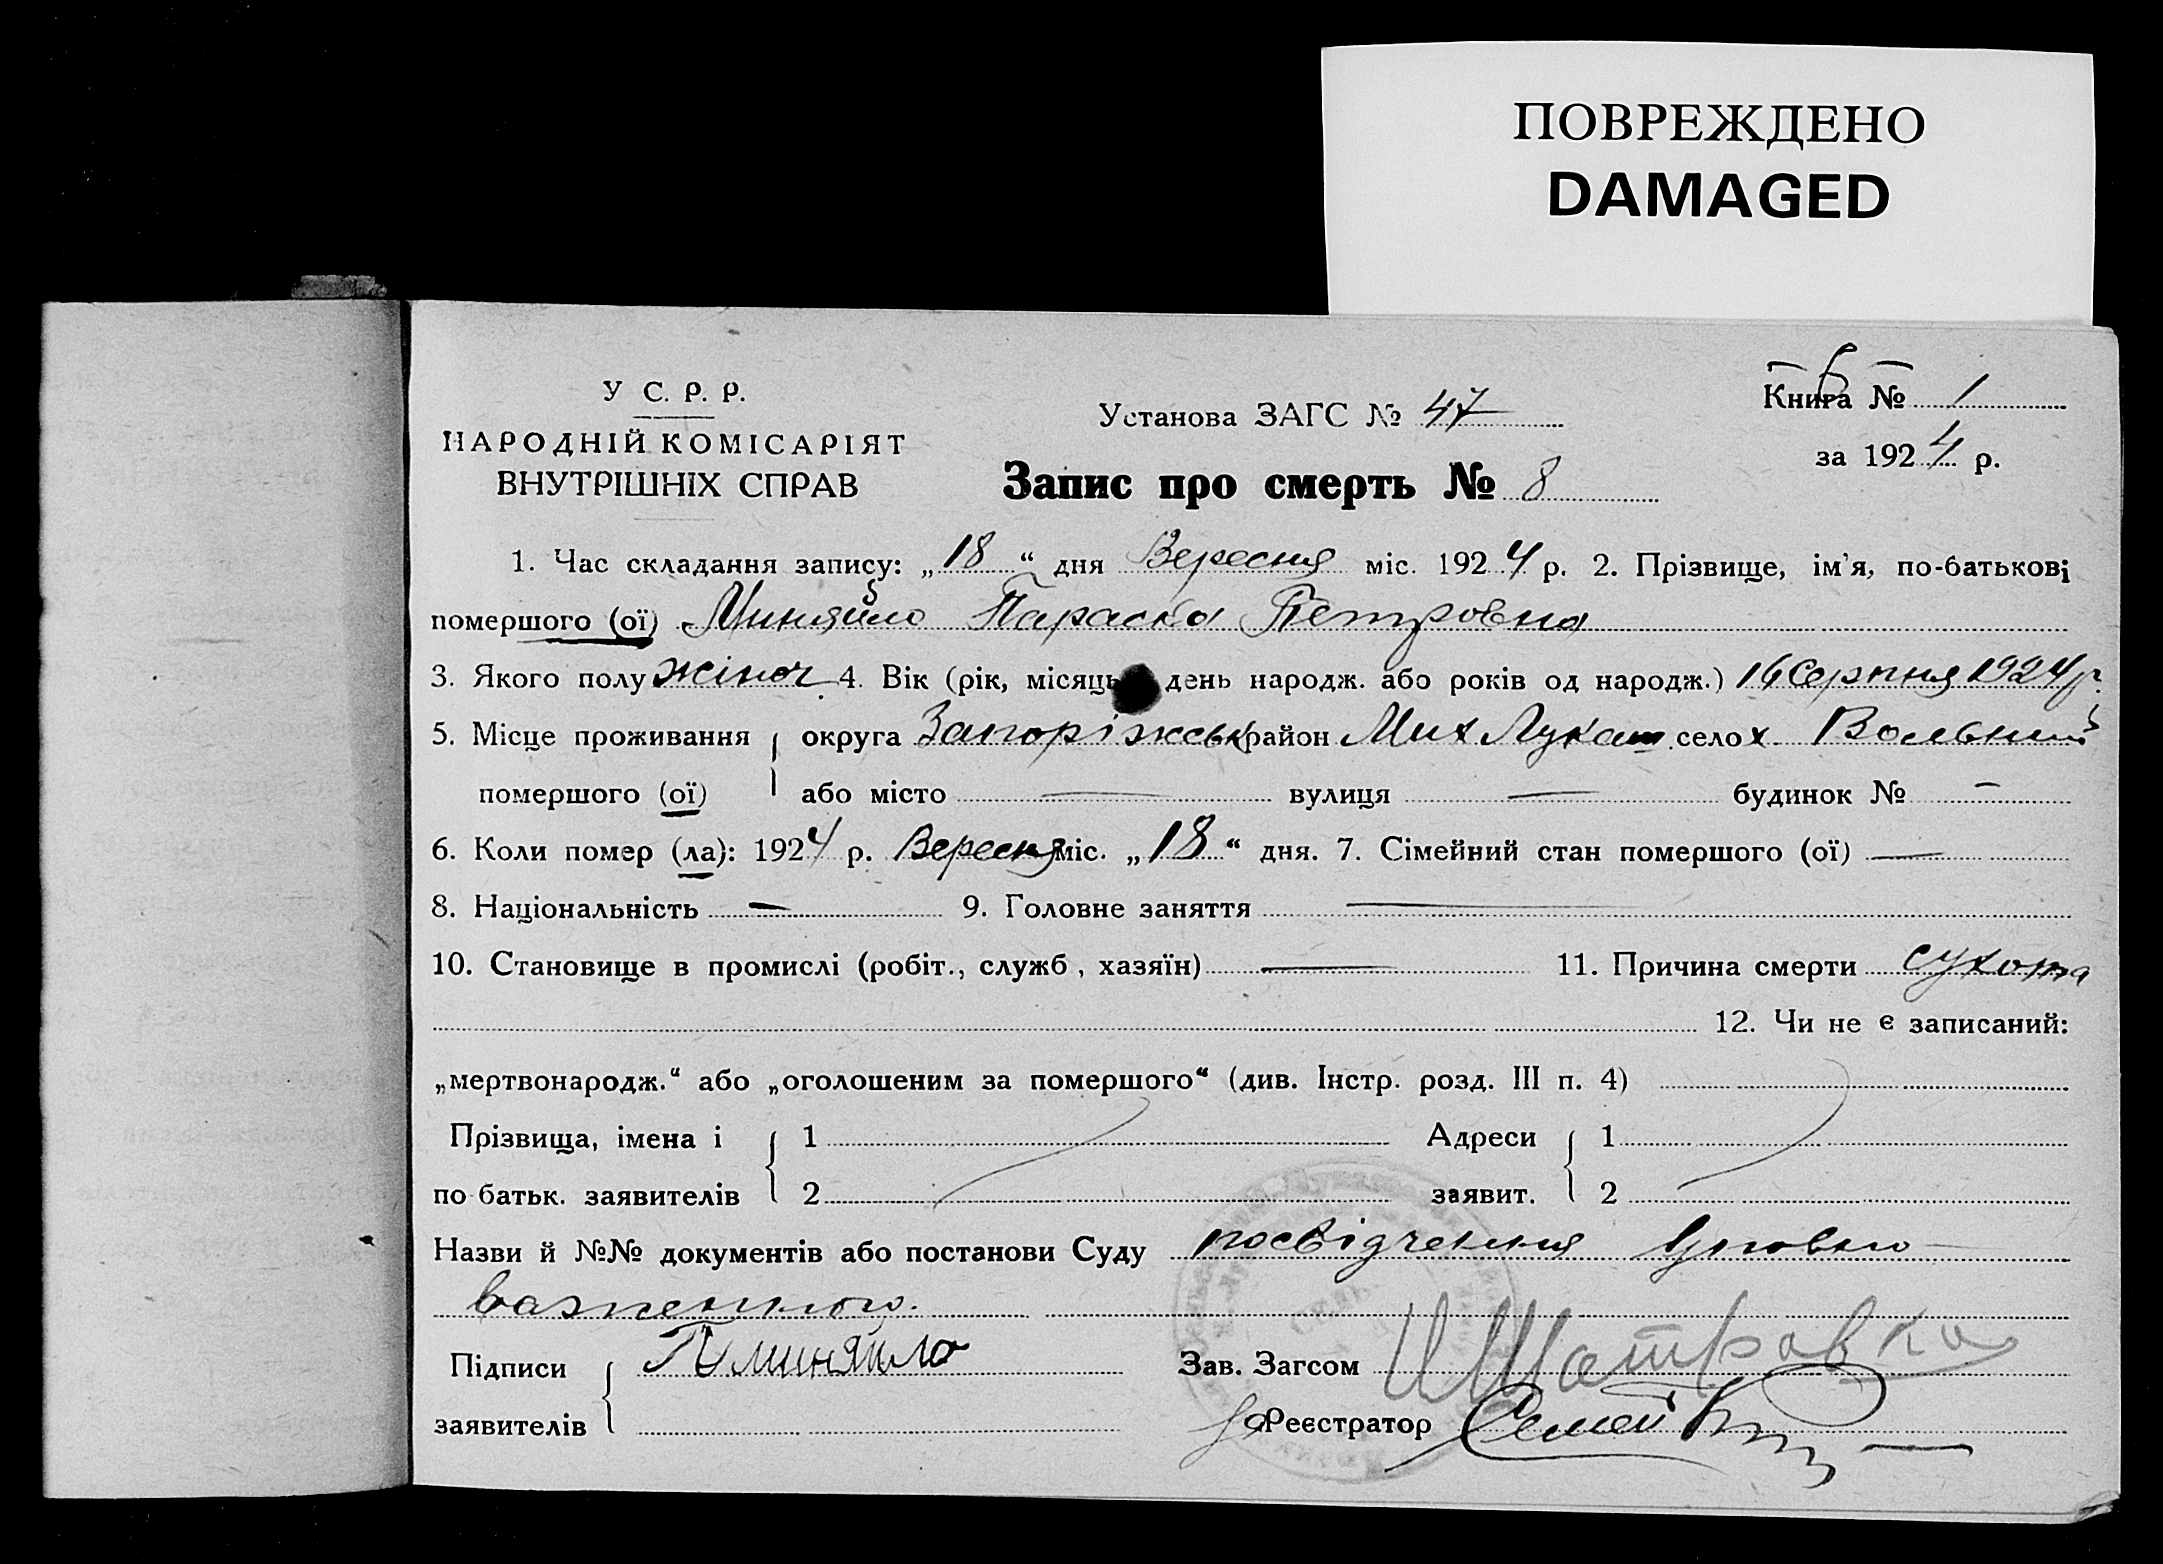 ПОВРЕЖДЕНО
DAMAGED
У С. Р. Р.
НАРОДНІЙ КОМІСАРІЯТ
ВНУТРІШНІХ СПРАВ
Установа ЗАГС № 47
Книга № 1
за 1924 р.
Запис про смерть № 8
1. Час складання запису: „18“ дня Вересня міс. 1924 р. 2. Прізвище, ім'я, по-батькові
помершого (ої) Миняйло Параска Петровна
3. Якого полу жіноч 4. Вік (рік, місяць день народж. або років од народж.) 16 Серпня 1924 р.
5. Місце проживання округа Запоріжськ район Мих Лукаш село х. Вольний
помершого (ої) або місто — вулиця — будинок № —
6. Коли помер (ла): 1924 р. Вересня міс. „18“ дня. 7. Сімейний стан помершого (ої) —
8. Національність — 9. Головне заняття —
10. Становище в промислі (робіт., служб, хазяїн) — 11. Причина смерти сухота
12. Чи не є записаний:
„мертвонародж.“ або „оголошеним за помершого“ (див. Інстр. розд. III п. 4)
Прізвища, імена і 1 Адреси 1
по батьк. заявителів 2 заявит. 2
Назви й №№ документів або постанови Суду посвідчення Уповно
важенного.
Підписи П Миняйло Зав. Загсом И Шатравка
заявителів Реєстратор Семей